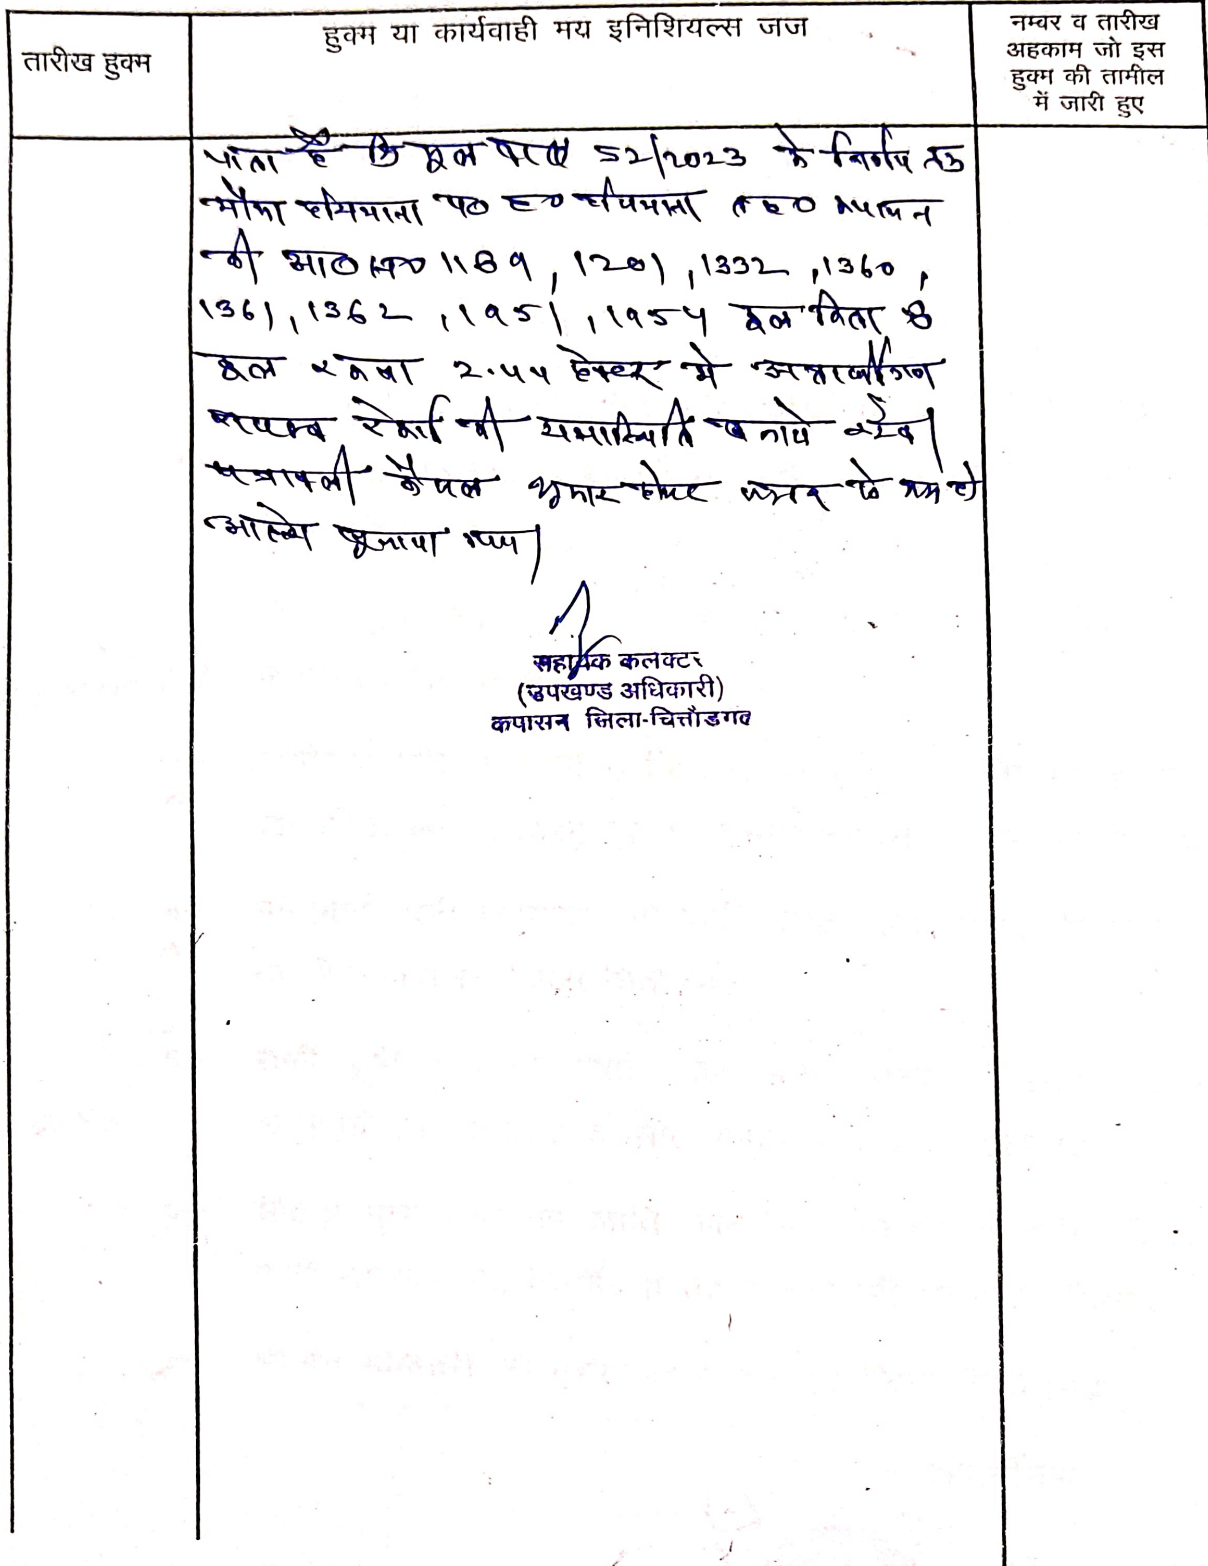 तारीख हुक्म
हुक्म या कार्यवाही मय इनिशियल्स जज
नम्वर व तारीख
अहकाम जो इस
हुक्म की तामील
में जारी हुए
जाता है कि मूल वाद 52/2023 के निर्णय तक
मौजा प०ह० तह० कपासन
की आ०न० 1189, 1201, 1332, 1360,
1361, 1362, 1951, 1954 कुल किता 8
कुल रकबा हेक्टर मे
रेकार्ड की यथास्थिति बनाये रखे।
पत्रावली फैसल शुमार होकर नम्बर से कम हो
आदेश सुनाया गया।
सहायक कलक्टर
(उपखण्ड अधिकारी)
कपासन जिला-चित्तौडगढ